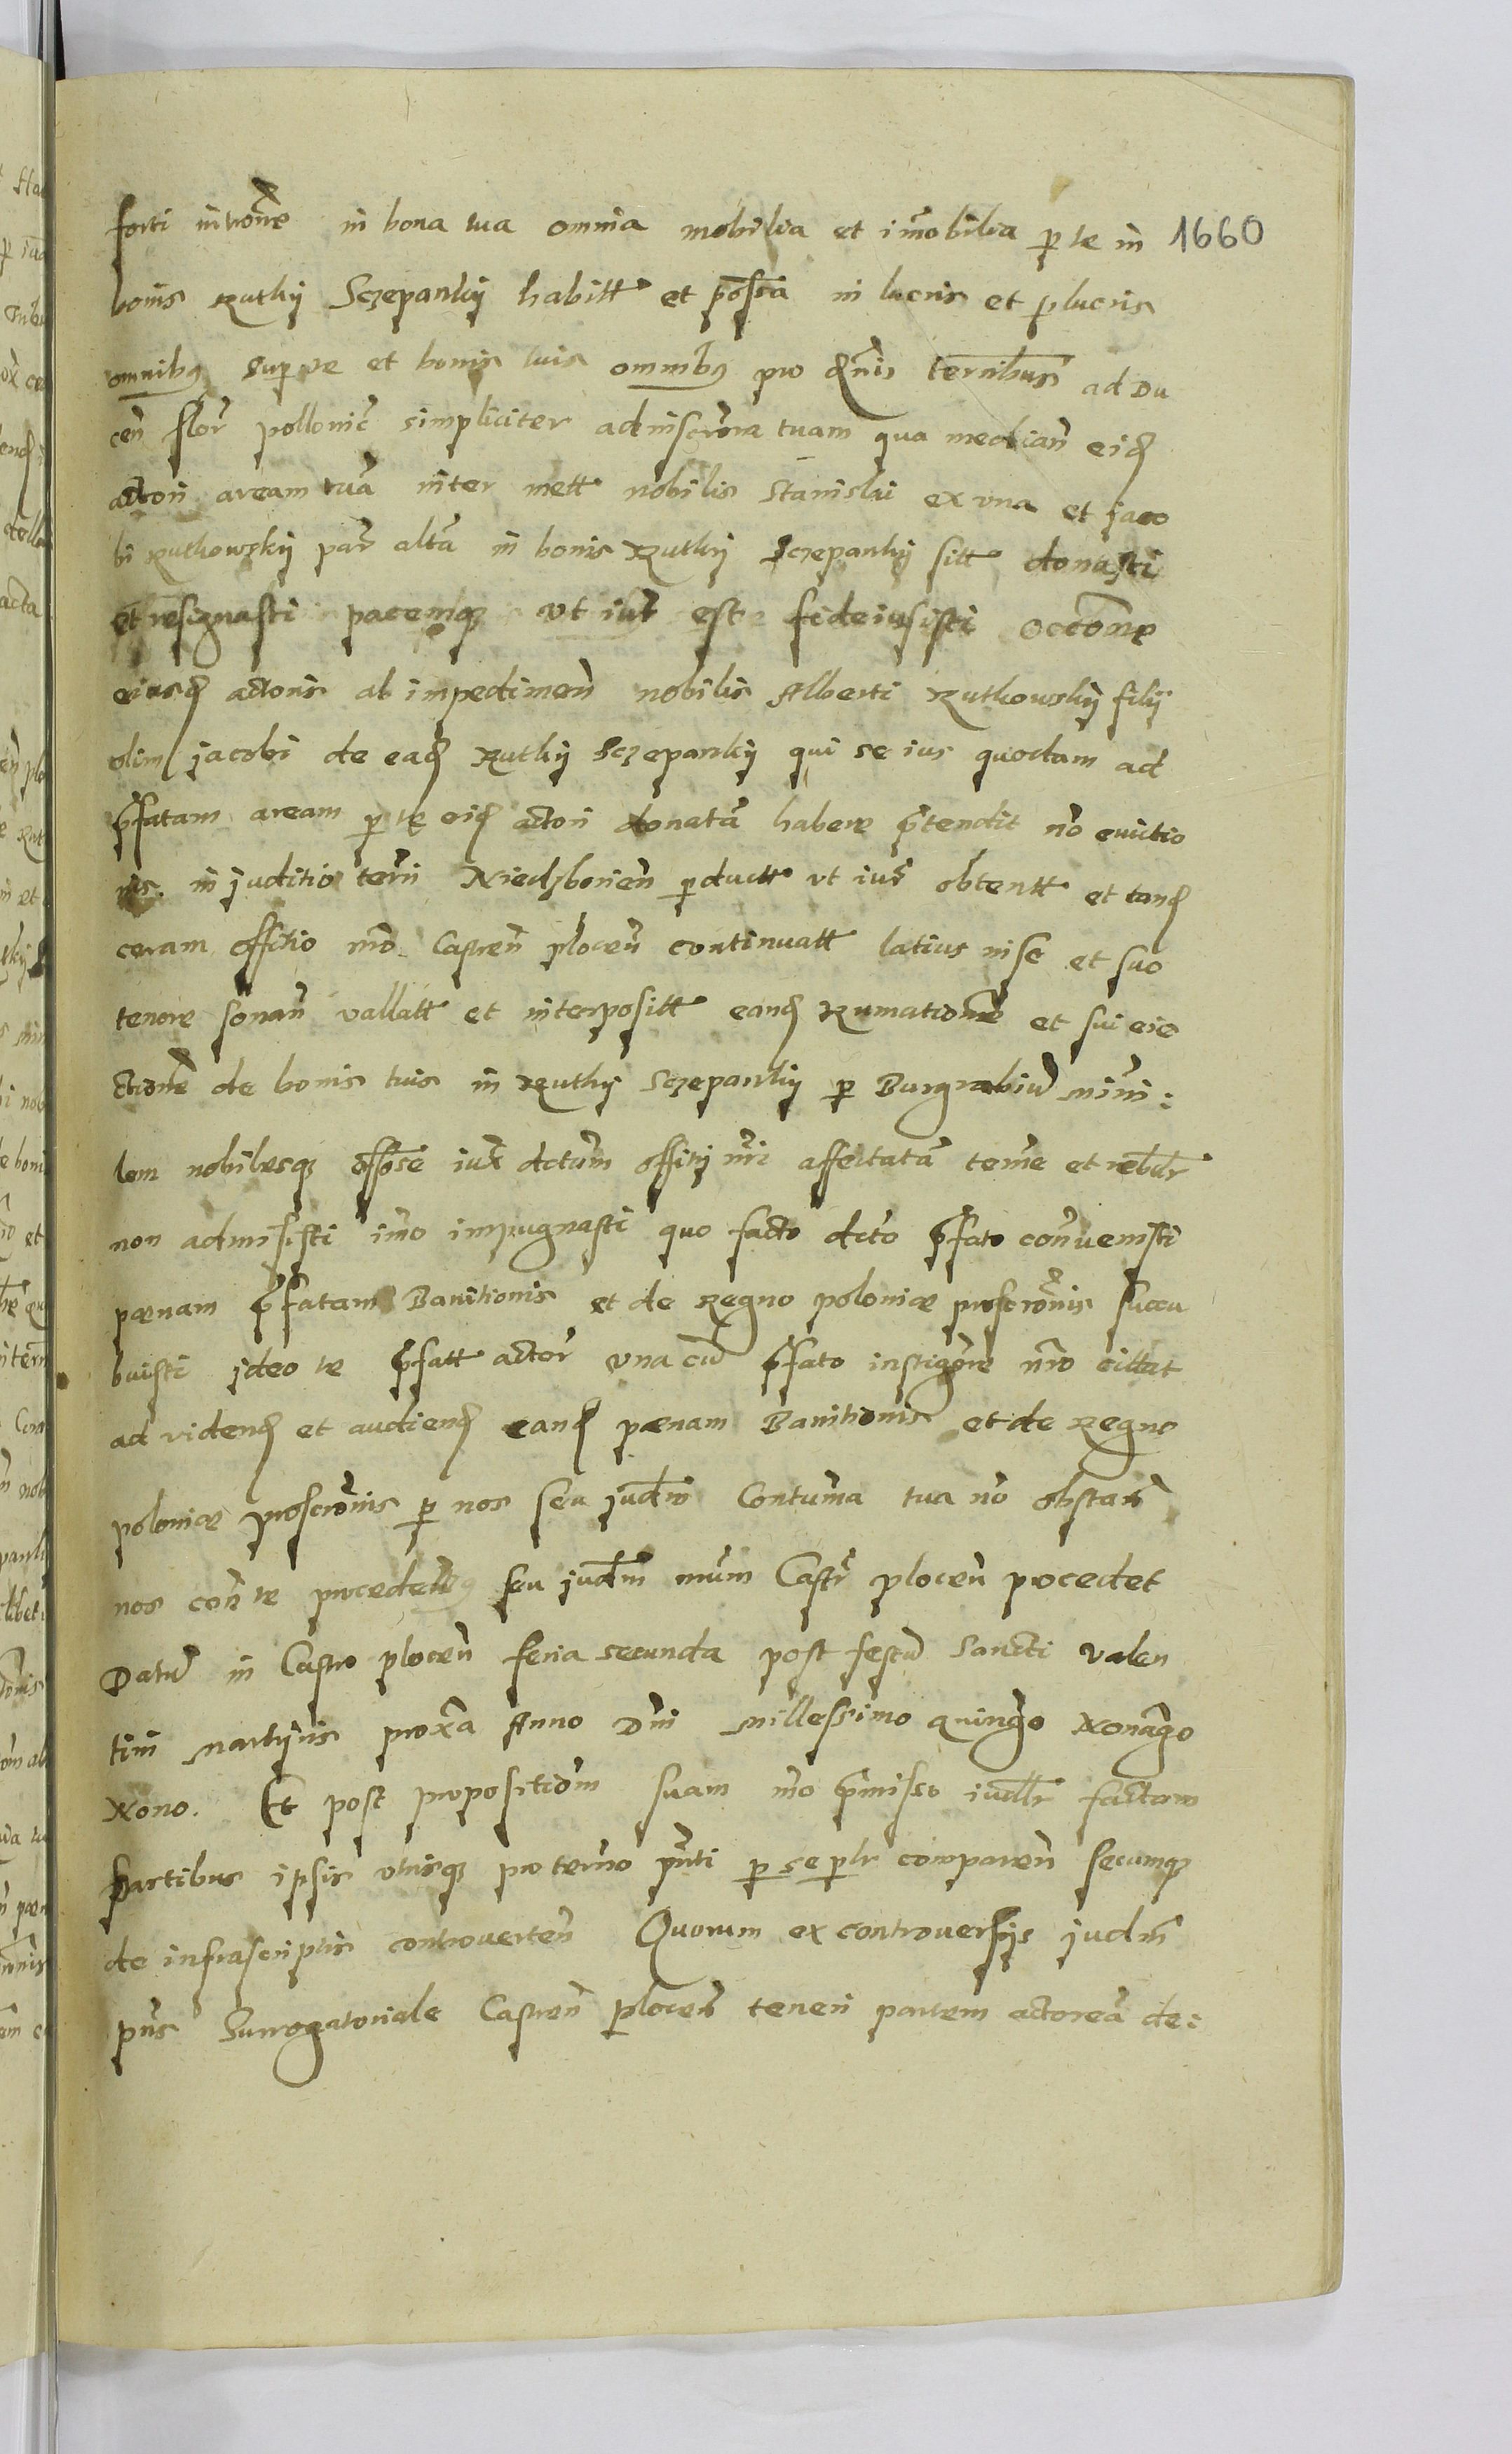 forti intrōne in bona tua omnia mobilia et im̄obilia p te in 1660
bonis Rutky Sczepanky habitt et posśa in lucris et plucris
omnibq Sup te et bonis tuis omnibq pro terribus ad Du
cen̄ flor̄ pollonić simpliciter ad inscrōne tuam qua median̄ eid
actori aream tuā inter mett nobilis Stanislai ex vna et jaco
bi Rutkowsky par̄ altā in bonis Rutky Sczepanky sitt donasti
et resignasti pacemq vt iur̄ est fideiussisti occōne
eiusd actoris ab impedimen̄ nobilis Alberti Rutkowsky filij
olim jacobi de ead Rutky Sczepanky qui se ius quoddam ad
p̄fatam aream p te eid actori donatā habere p̄tendit nō euictio
nis. in juditio terrī Niedzborien̄ pductt vt iur̄ obtentt et tand
coram offitio nrō Castren̄ plocen̄ continuatt latius in se et suo
tenore sonan̄ vallatt et interpositt eand Rumationē et sui eie
ctionē de bonis tuis in Rutky Sczepanky p Burgrabiū Mini:
lem nobilesq iux dctum offitij nr̄i affectatā temere et rebellr̄
non admisisti imo impugnasti quo facto dcto p̄fato conuenisti
pœnam p̄fatam Banitionis et de Regno poloniæ proscrōnis succu
buisti jdeo te p̄fatt actor vna cū p̄fato instigōre nrō cittat
ad videnđ et audienđ eand pœnam Banitionis et de Regno
poloniæ proscrōnis p nos seu judm̄ Contuma tua nō obstan̄
nos con̄ te procedemq seu judm̄ nrūm Castr̄ plocen̄ procedet
Datū in Castro plocen̄ feria secunda post festū Sancti Valen
tini Martyris proxa Anno Dnī Millessimo quingō Nonagō
Nono. Et post propositiom̄ suam mō p̄misso iudlr̄ factam
Partibus ipsis vtrisq pro termo pn̄ti p se plr comparen̄ secumq
de infrascriptis controuerten̄ Quorum ex controuersijs judm̄
pn̄s Surrogatoriale Castren̄ Plocen̄ tenen̄ partem actoreā de: